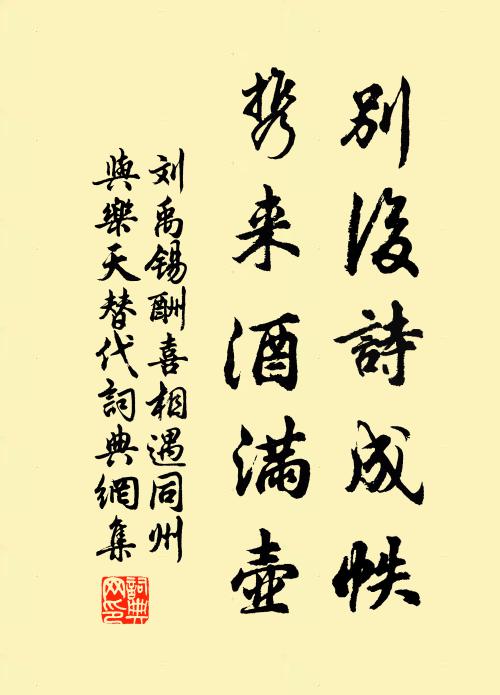 別後詩成帙
携来酒滿壺
刘禹锡酬喜相遇同州
與樂天替代詞典網集
詞典網印